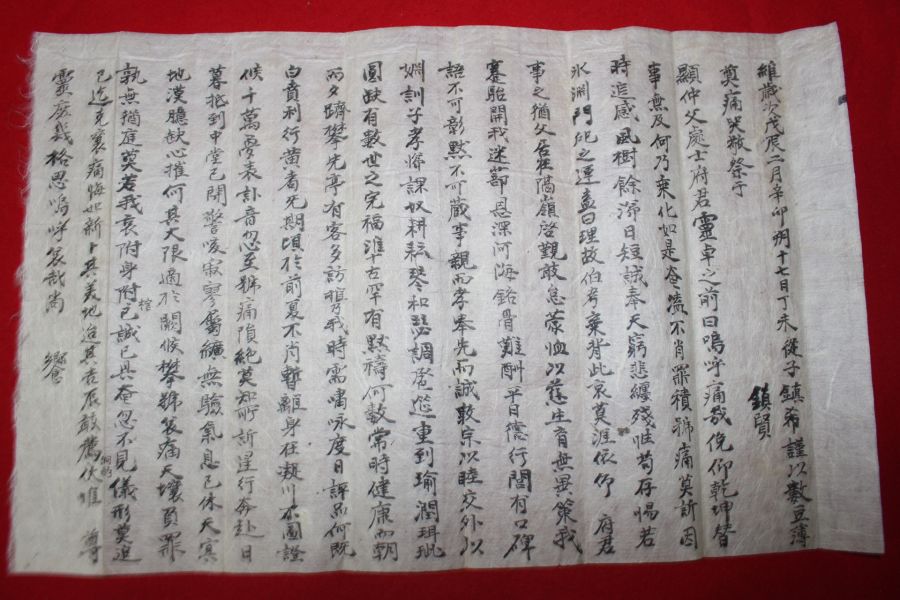 維歲次戊辰二月辛卯朔十七日丁未從子鎭希謹以數豆薄
鎭賢
奠痛哭敬祭于
顯仲父處士府君靈卓之前曰嗚呼痛哉俛仰乾坤替
事無及何乃乘化如是奄忽不肖罪積號痛莫訴因
時追感風樹餘涕日短誠奉天窮悲纏殘惟苟存惕若
氷淵門祀之運孟曰理故伯考棄背此哀莫涯依仰府君
事之猶父居在隔嶺啓觀敢怠蒙恤以薳生育無異策我
蹇駘開我迷蔀恩深河海銘骨難酬平日德行閭有口碑
語不可彰默不可蔵事親而孝奉先而誠敦宗以睦交外以
姻訓子孝悌課奴耕耘琴和瑟調鴛鴦重到瑜潤珥玭
圓缺有數世之完福淮古罕有默禱何數常時健康而朝
而夕躋攀先亭有客多訪暇我時需嘯咏度日評品何旣
白賁利行黃耈先期頃於前夏不肖暫離身在凝川不圖證
候千萬夢表訃音忽至號痛隕絶莫知所訴望行奔赴日
暮抵到中堂已閉警咳寂寥屬纊無驗氣息已休天寘
地漠臆缺心摧何其大限適於闕候攀號哀痛天壤負罪
孰無猶庭莫若我哀附身附已誠已具奄忽不見儀形莫追
棺
已迄克襄痛悔如新卜其美地迨其吉辰敢薦伏惟尊
泂酌
靈庶幾格思嗚呼哀哉尚饗